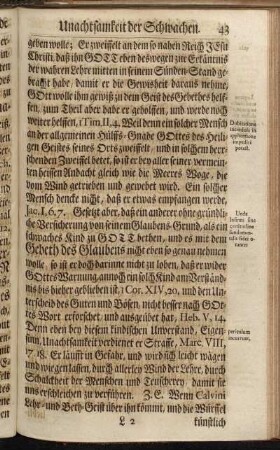 Unachtsamkeit der Schwachen. 43
geben wolle; Er zweiffelt an dem so nahen Reich JEsu
Christi, daß ihn GOTT eben deswegen zur Erkäntnis
der wahren Lehre mitten in seinem Sünden-Stand ge-
bracht habe, damit er die Gewisheit daraus nehme,
GOtt wolle ihm gewiß zu dem Geist des Gebethes helf-
fen, zum Theil aber habe er geholffen, und werde noch
weiter helffen, 1 Tim. II, 4. Weil denn ein solcher Mensch
an der allgemeinen Hülffs-Gnade GOttes des Heili-
gen Geistes seines Orts zweiffelt, und in solchem herr-
schenden Zweiffel betet, so ist er bey aller seiner vermein-
ten heissen Andacht gleich wie die Meeres Woge, die
vom Wind getrieben und gewebet wird. Ein solcher
Mensch dencke nicht, daß er etwas empfangen werde,
Jac. I, 6. 7. Gesetzt aber, daß ein anderer ohne gründli-
che Versicherung von seinem Glaubens-Grund, als ein
schwaches Kind zu GOTT bethen, und es mit dem
Gebeth des Glaubens nicht eben so genau nehmen
wolle, so ist er doch darinne nicht zu loben, daß er wider
GOttes Warnung annoch ein solch Kind am Verständ-
nis bis hieher geblieben ist, 1 Cor. XIV, 20, und den Un-
terscheid des Guten und Bösen, nicht besser nach GOt-
tes Wort erforschet, und ausgeübet hat, Heb. V, 14.
Denn eben bey diesem kindischen Unverstand, Eigen-
sinn, Unachtsamkeit verdienet er Straffe, Marc. VIII,
17. 18. Er läufft in Gefahr, und wird sich leicht wägen
und wiegen lassen, durch allerley Wind der Lehre, durch
Schalckheit der Menschen und Teuscherey, damit sie
uns erschleichen zu verführen. Z. E. Wenn Calvini
Lehr- und Beth-Geist über ihn kömmt, und die Würffel
L 2 künstlich
periculum
incurrat,